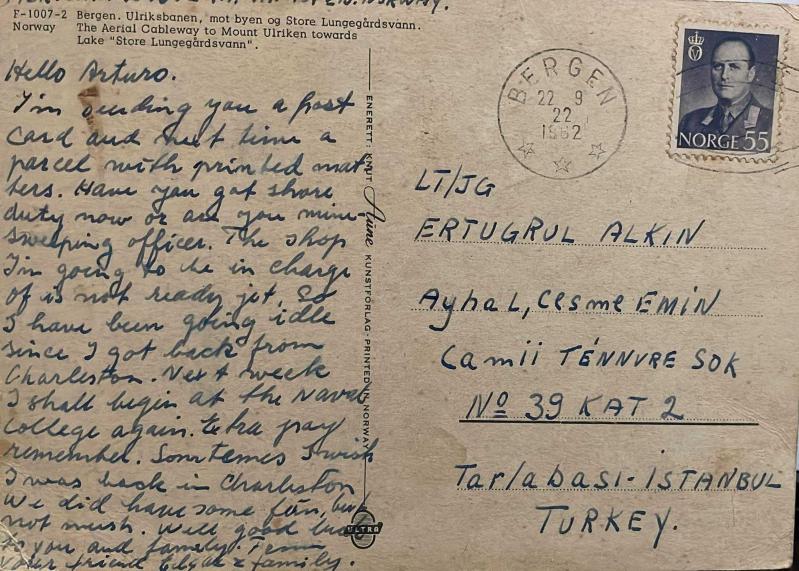 F-1007-2 Bergen. Ulriksbanen, mot byen og Store Lungegårdsvann.
Norway The Aerial Cableway to Mount Ulriken towards
Lake "Store Lungegårdsvann".
Hello Arturo.
I'm sending you a post
card and next time a
parcel with printed mat
ters. Have you got shore
duty now or are you mine-
sweeping officer. The shop
I'm going to be in charge
of is not ready jet. So
I have been going idle
since I got back from
Charleston. Next week
I shall begin at the Naval
College again. Extra pay
remember. Sometimes I wish
I was back in Charleston
We did have some fun, but
not mush. Well good luck
to you and family.
your friend & family.
ENERETT: KNUT Aune KUNSTFORLAG - PRINTED IN NORWAY
ULTRA
BERGEN
22 9
22
1962
NORGE 55
LT/JG
ERTUGRUL ALKIN
Ayhal, Cesme EMIN
Camii TÉNNVRE SOK
No 39 KAT 2
Tarlabası - İSTANBUL
TURKEY.